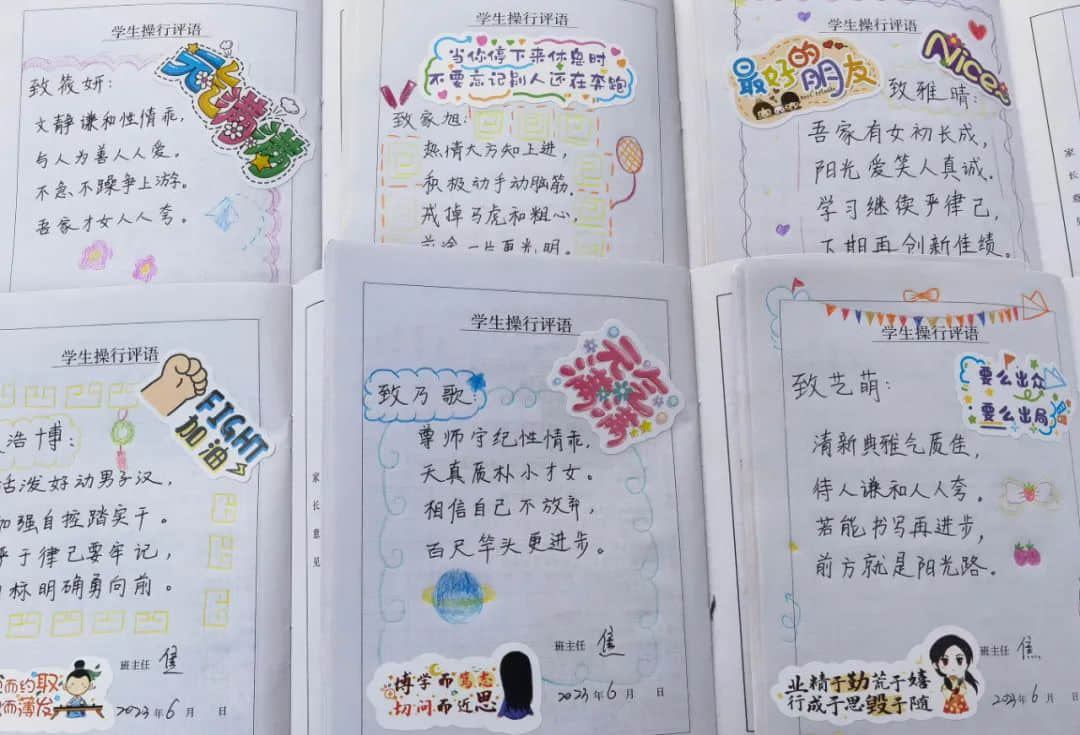 学生操行评语
元气满满
致筱妍：
文静谦和性情乖，
与人为善人人爱。
不急不躁争上游。
吾家才女人人夸。
学生操行评语
当你停下来休息时
不要忘记别人还在奔跑
致家旭：
热情大方知上进，
积极动手动脑筋．
戒掉马虎和粗心，
前途一片更光明．
学生操行评语
最好的朋友
Nice
致雅晴：
吾家有女初长成，
阳光爱笑人真诚．
学习继续严律己，
下期再创新佳绩。
家长意
学生操行评语
FIGHT
加油
浩博：
活泼好动男子汉，
加强自控踏实干。
严于律己要牢记，
目标明确勇向前。
班主任 焦
而约取
而薄发
2023年6月 日
家长意见
学生操行评语
元气满满
致乃歌：
尊师守纪性情乖，
天真质朴小才女。
相信自己不放弃，
百尺竿头更进步。
班主任 焦
博学而笃志
切问而近思
2023年6月 日
学生操行评语
要么出众
要么出局
致艺萌：
清新典雅气质佳，
待人谦和人人夸。
若能书写再进步，
前方就是阳光路．
班主任 焦
业精于勤荒于嬉
行成于思毁于随
2023年6月 日